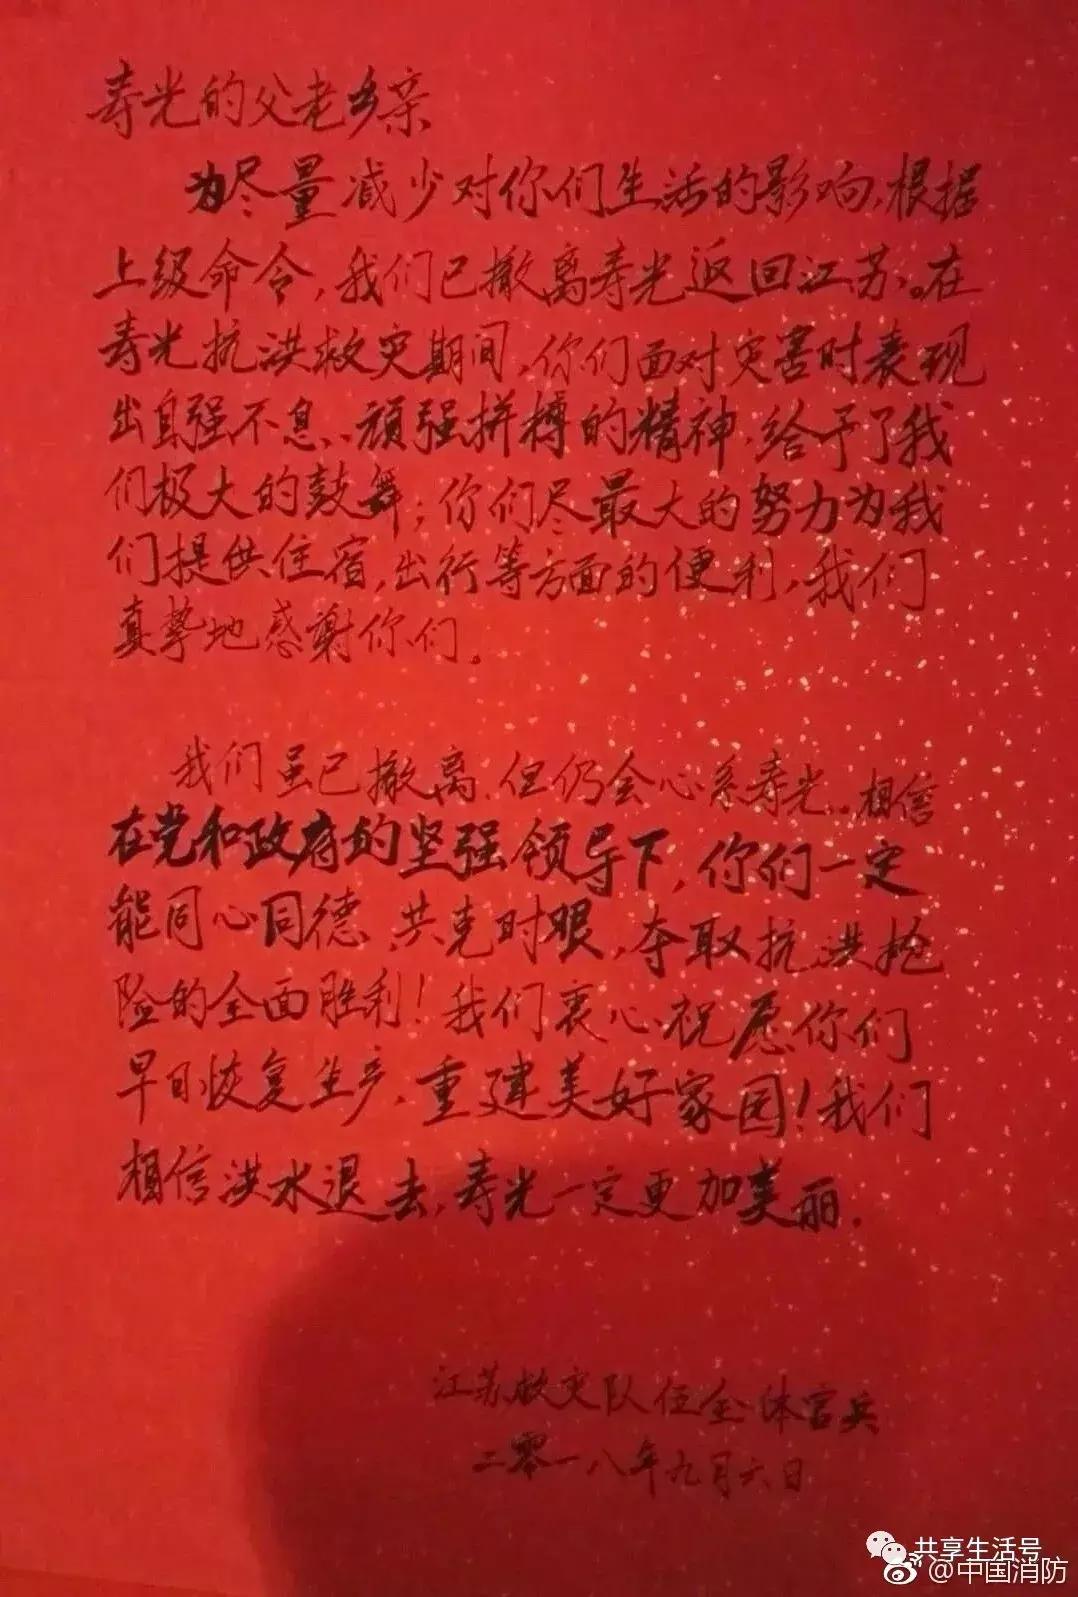 寿光的父老乡亲
为尽量减少对你们生活的影响，根据
上级命令，我们已撤离寿光返回江苏。在
寿光抗洪救灾期间，你们面对灾害时表现
出自强不息、顽强拼搏的精神，给予了我
们极大的鼓舞；你们尽最大的努力为我
们提供住宿，出行等方面的便利，我们
真挚地感谢你们。
我们虽已撤离，但仍会心系寿光。相信
在党和政府的坚强领导下，你们一定
能同心同德，共克时艰，夺取抗洪抢
险的全面胜利！我们衷心祝愿你们
早日恢复生产，重建美好家园！我们
相信洪水退去，寿光一定更加美丽.
江苏救灾队伍全体官兵
二零一八年九月六日
共享生活号
@中国消防